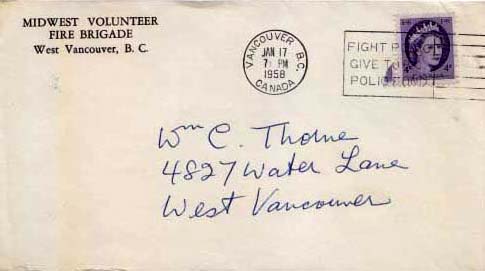 MIDWEST VOLUNTEER
FIRE BRIGADE
West Vancouver, B. C.
VANCOUVER, B.C.
JAN 17
7 PM
1958
CANADA
FIGHT
GIVE TO
POLIO
Wm C. Thorne
4827 Water Lane
West Vancouver